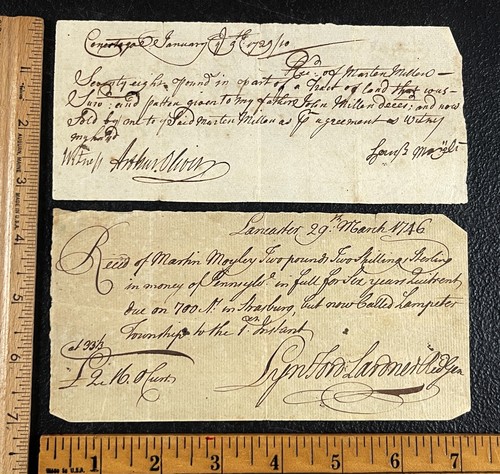 Conestoga January 9th 1729/10
Recd of Marten Millen
Seventy eight pound in part of a tract of land that was
Surv: and patten given to my father John Millen deced: and now
Sold by one to ye Said Marten Millen as ye agreement as Witness
my hand
Witness Arthur Oliver
Recd of Martin Moyley Two pounds Two Shilling Sterling
Lancaster 29th March 1746
in money of Pennsylva in full for Six years Quitrent
due on 700 As. in Strasburg, but now Called Lampeter
Township to the 1st Instant
at 33/3
£2.16.0 Curr
Lynford Lardner Recd Gen
1 2 3 4 5 6 7
MADE IN U.S.A.
2 3 4 5 6 7